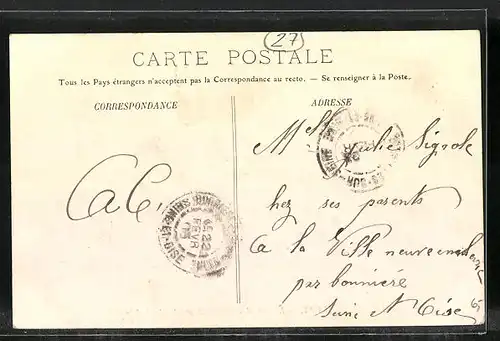 27
CARTE POSTALE
Tous les Pays étrangers n'acceptent pas la Correspondance au recto. — Se renseigner à la Poste.
CORRESPONDANCE
ADRESSE
Mlle Julie Signole
AC
hez ses parents
a la Ville neuve en
par bonniere
Seine et Oise
SEINE-ET-OISE
22
FEVR